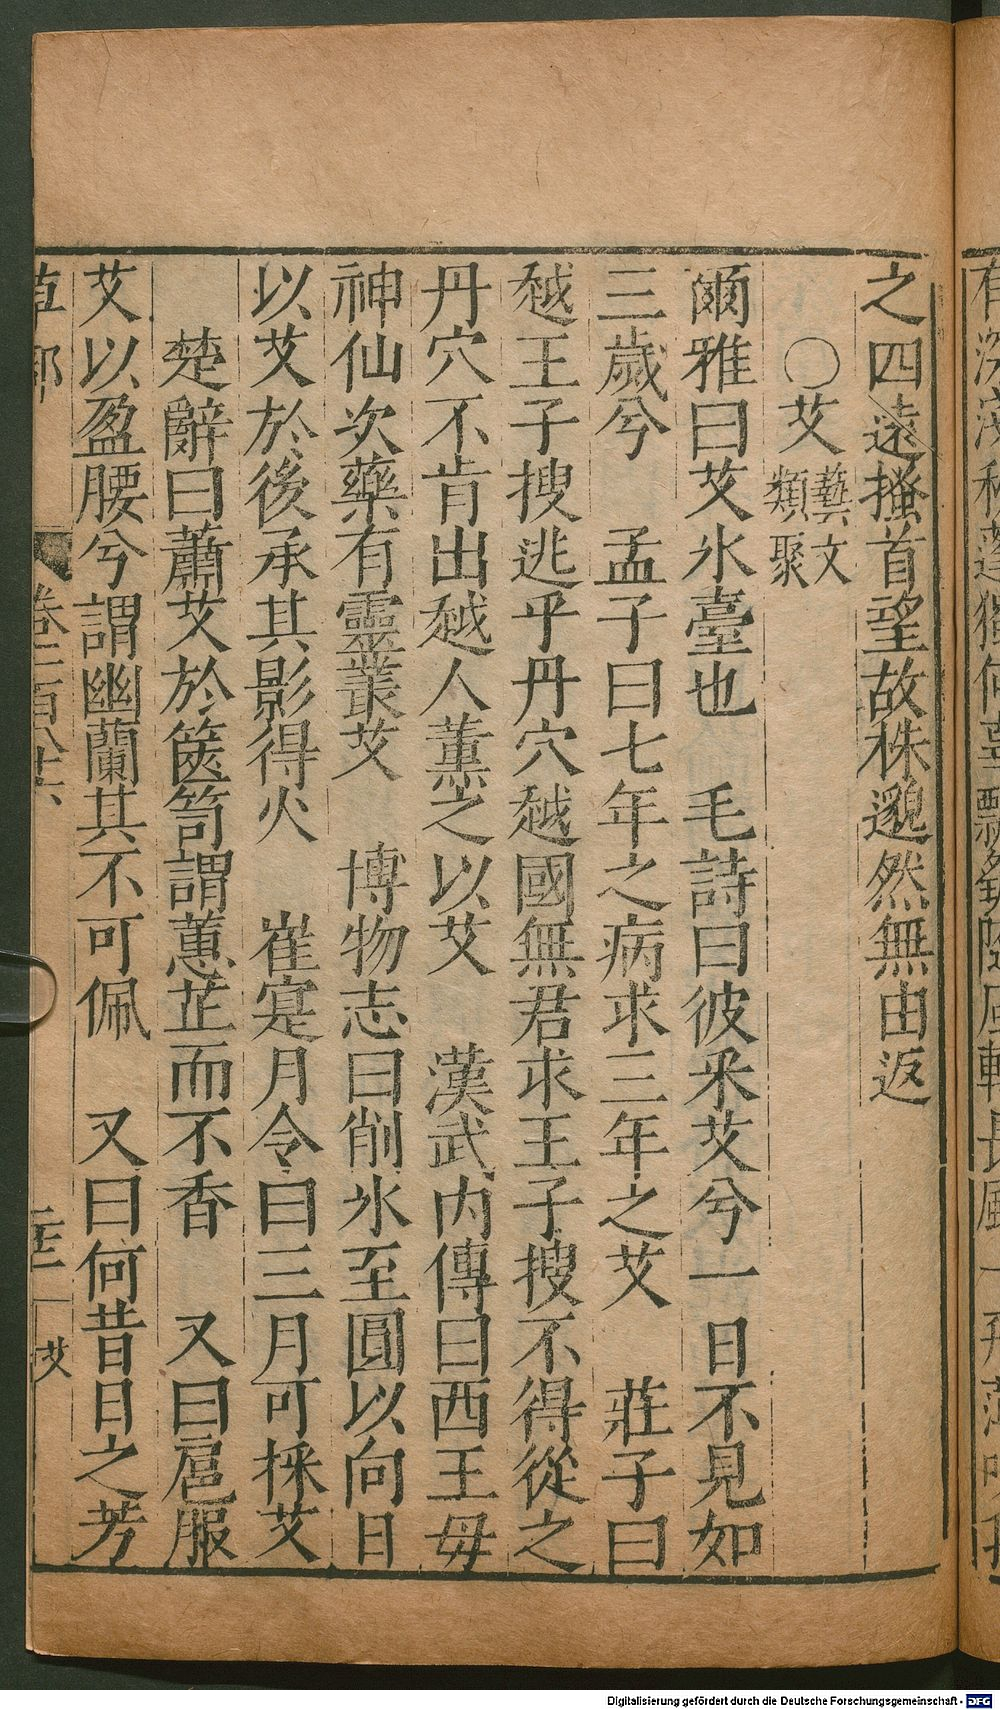 之四遠搔首望故株邈然無由返
○艾藝文類聚
爾雅曰艾氷臺也　毛詩曰彼采艾兮一日不見如
三歲兮　孟子曰七年之病求三年之艾　莊子曰
越王子搜逃乎丹穴越國無君求王子搜不得從之
丹穴不肯出越人薰之以艾　漢武内傳曰西王毋
神仙次藥有靈叢艾　博物志曰削氷至圓以向日
以艾於後承其影得火　崔寔月令曰三月可採艾
楚辭曰蕭艾於篋笥謂蕙芷而不香　又曰扈服
艾以盈腰兮謂幽蘭其不可佩　又曰何昔日之芳
艾
Digitalisierung gefördert durch die Deutsche Forschungsgemeinschaft - DFG